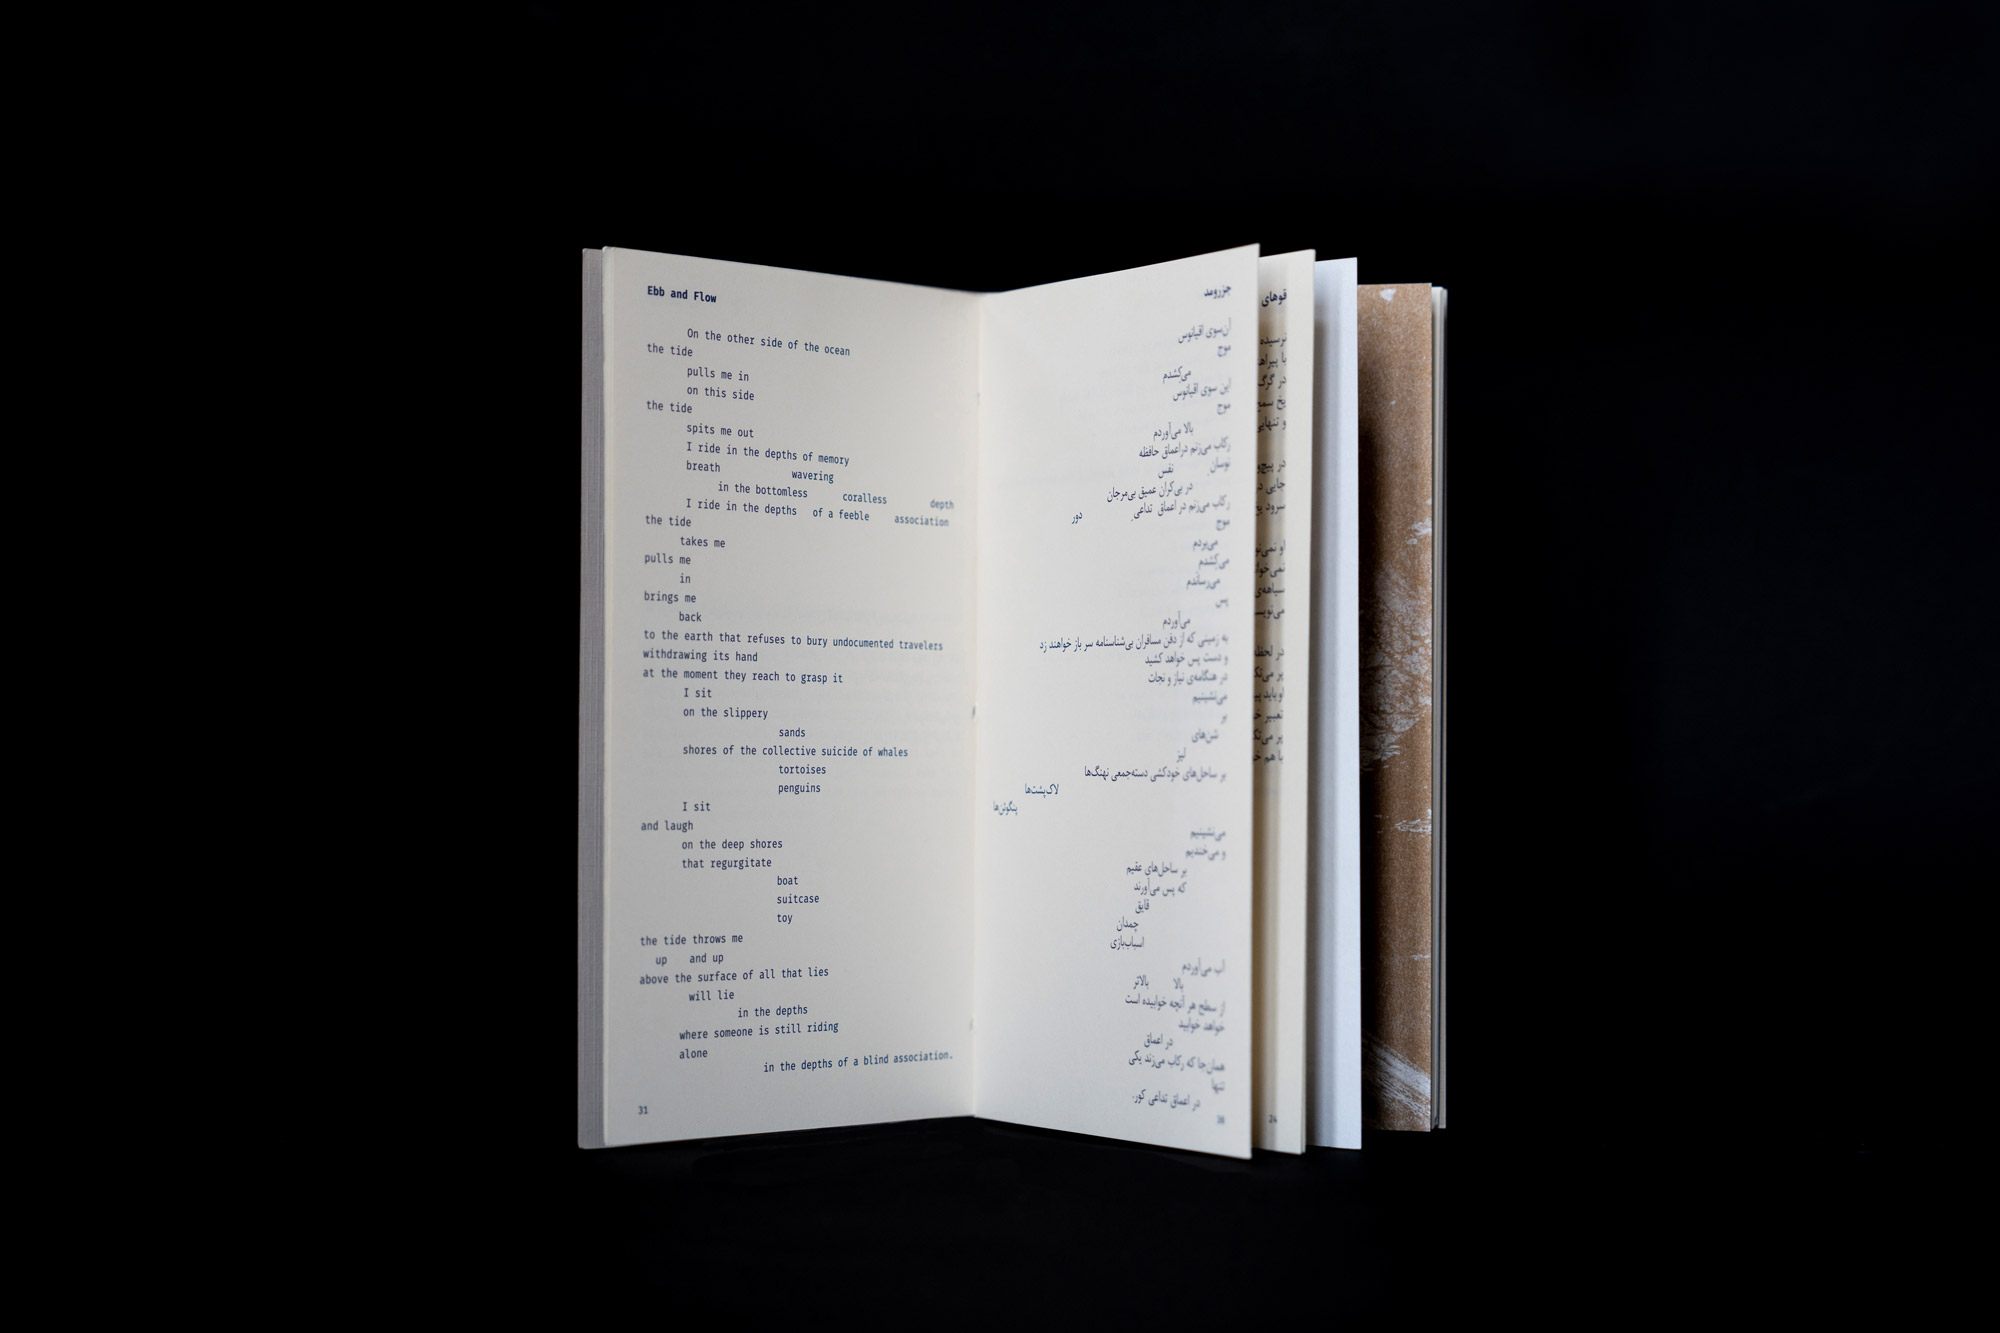 Ebb and Flow
On the other side of the ocean
the tide
pulls me in
on this side
the tide
spits me out
I ride in the depths of memory
breath wavering
in the bottomless coralless depth
I ride in the depths of a feeble association
the tide
takes me
pulls me
in
brings me
back
to the earth that refuses to bury undocumented travelers
withdrawing its hand
at the moment they reach to grasp it
I sit
on the slippery
sands
shores of the collective suicide of whales
tortoises
penguins
I sit
and laugh
on the deep shores
that regurgitate
boat
suitcase
toy
the tide throws me
up and up
above the surface of all that lies
will lie
in the depths
where someone is still riding
alone
in the depths of a blind association.
31
جزرومد
آن‌سوی اقیانوس
موج
می‌کِشدم
این سوی اقیانوس
موج
بالا می‌آوردم
رکاب می‌زنم دراعماق حافظه
نوسان نفس
در بی‌کران عمیق بی‌مرجان
رکاب می‌زنم در اعماق تداعی دور
موج
می‌بردم
می‌کِشدم
می‌رساندم
پس
می‌آوردم
به زمینی که از دفن مسافران بی‌شناسنامه سر باز خواهند زد
و دست پس خواهد کشید
در هنگامه‌ی نیاز و نجات
می‌نشینیم
بر
شن‌های
لیز
بر ساحل‌های خودکشی دسته‌جمعی نهنگ‌ها
لاک‌پشت‌ها
پنگوئن‌ها
می‌نشینیم
و می‌خندیم
بر ساحل‌های عقیم
که پس می‌آورند
قایق
چمدان
اسباب‌بازی
آب می‌آوردم
بالا بالاتر
از سطح هر آنچه خوابیده است
خواهد خوابید
در اعماق
همان‌جا که رکاب می‌زند یکی
تنها
در اعماق تداعی کور.
قوهای
نرسیده
در گرگ
یخ سمج
و تنهایی
جایی در
در لحظه
با هم